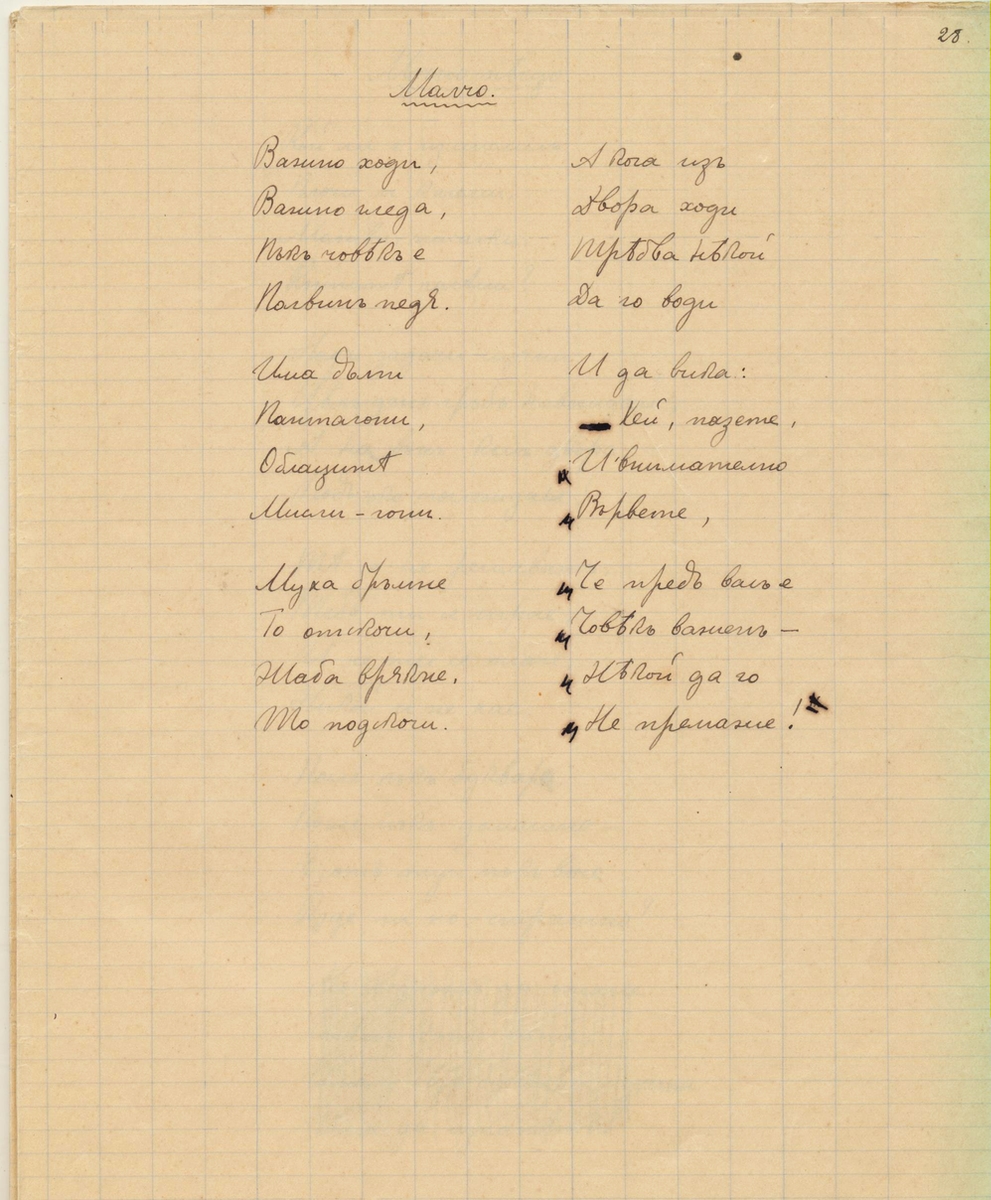 28.
Малчо.
Важно ходи,
Важно гледа,
Пъкъ човѣкъ е
Половинъ педя.
Има дълги
Панталони,
Облащитѣ
Мигли - гони.
Муха бръмне
То отскочи,
Жаба врякне.
То подскочи.
А кога изъ
Двора ходи
Трѣбва нѣкой
Да го води
И да вика:
Хей, пазете,
„И внимателно
„Вървете,
„Че предъ васъ е
„Човѣкъ важенъ –
„Нѣкой да го
„Не премаже!"